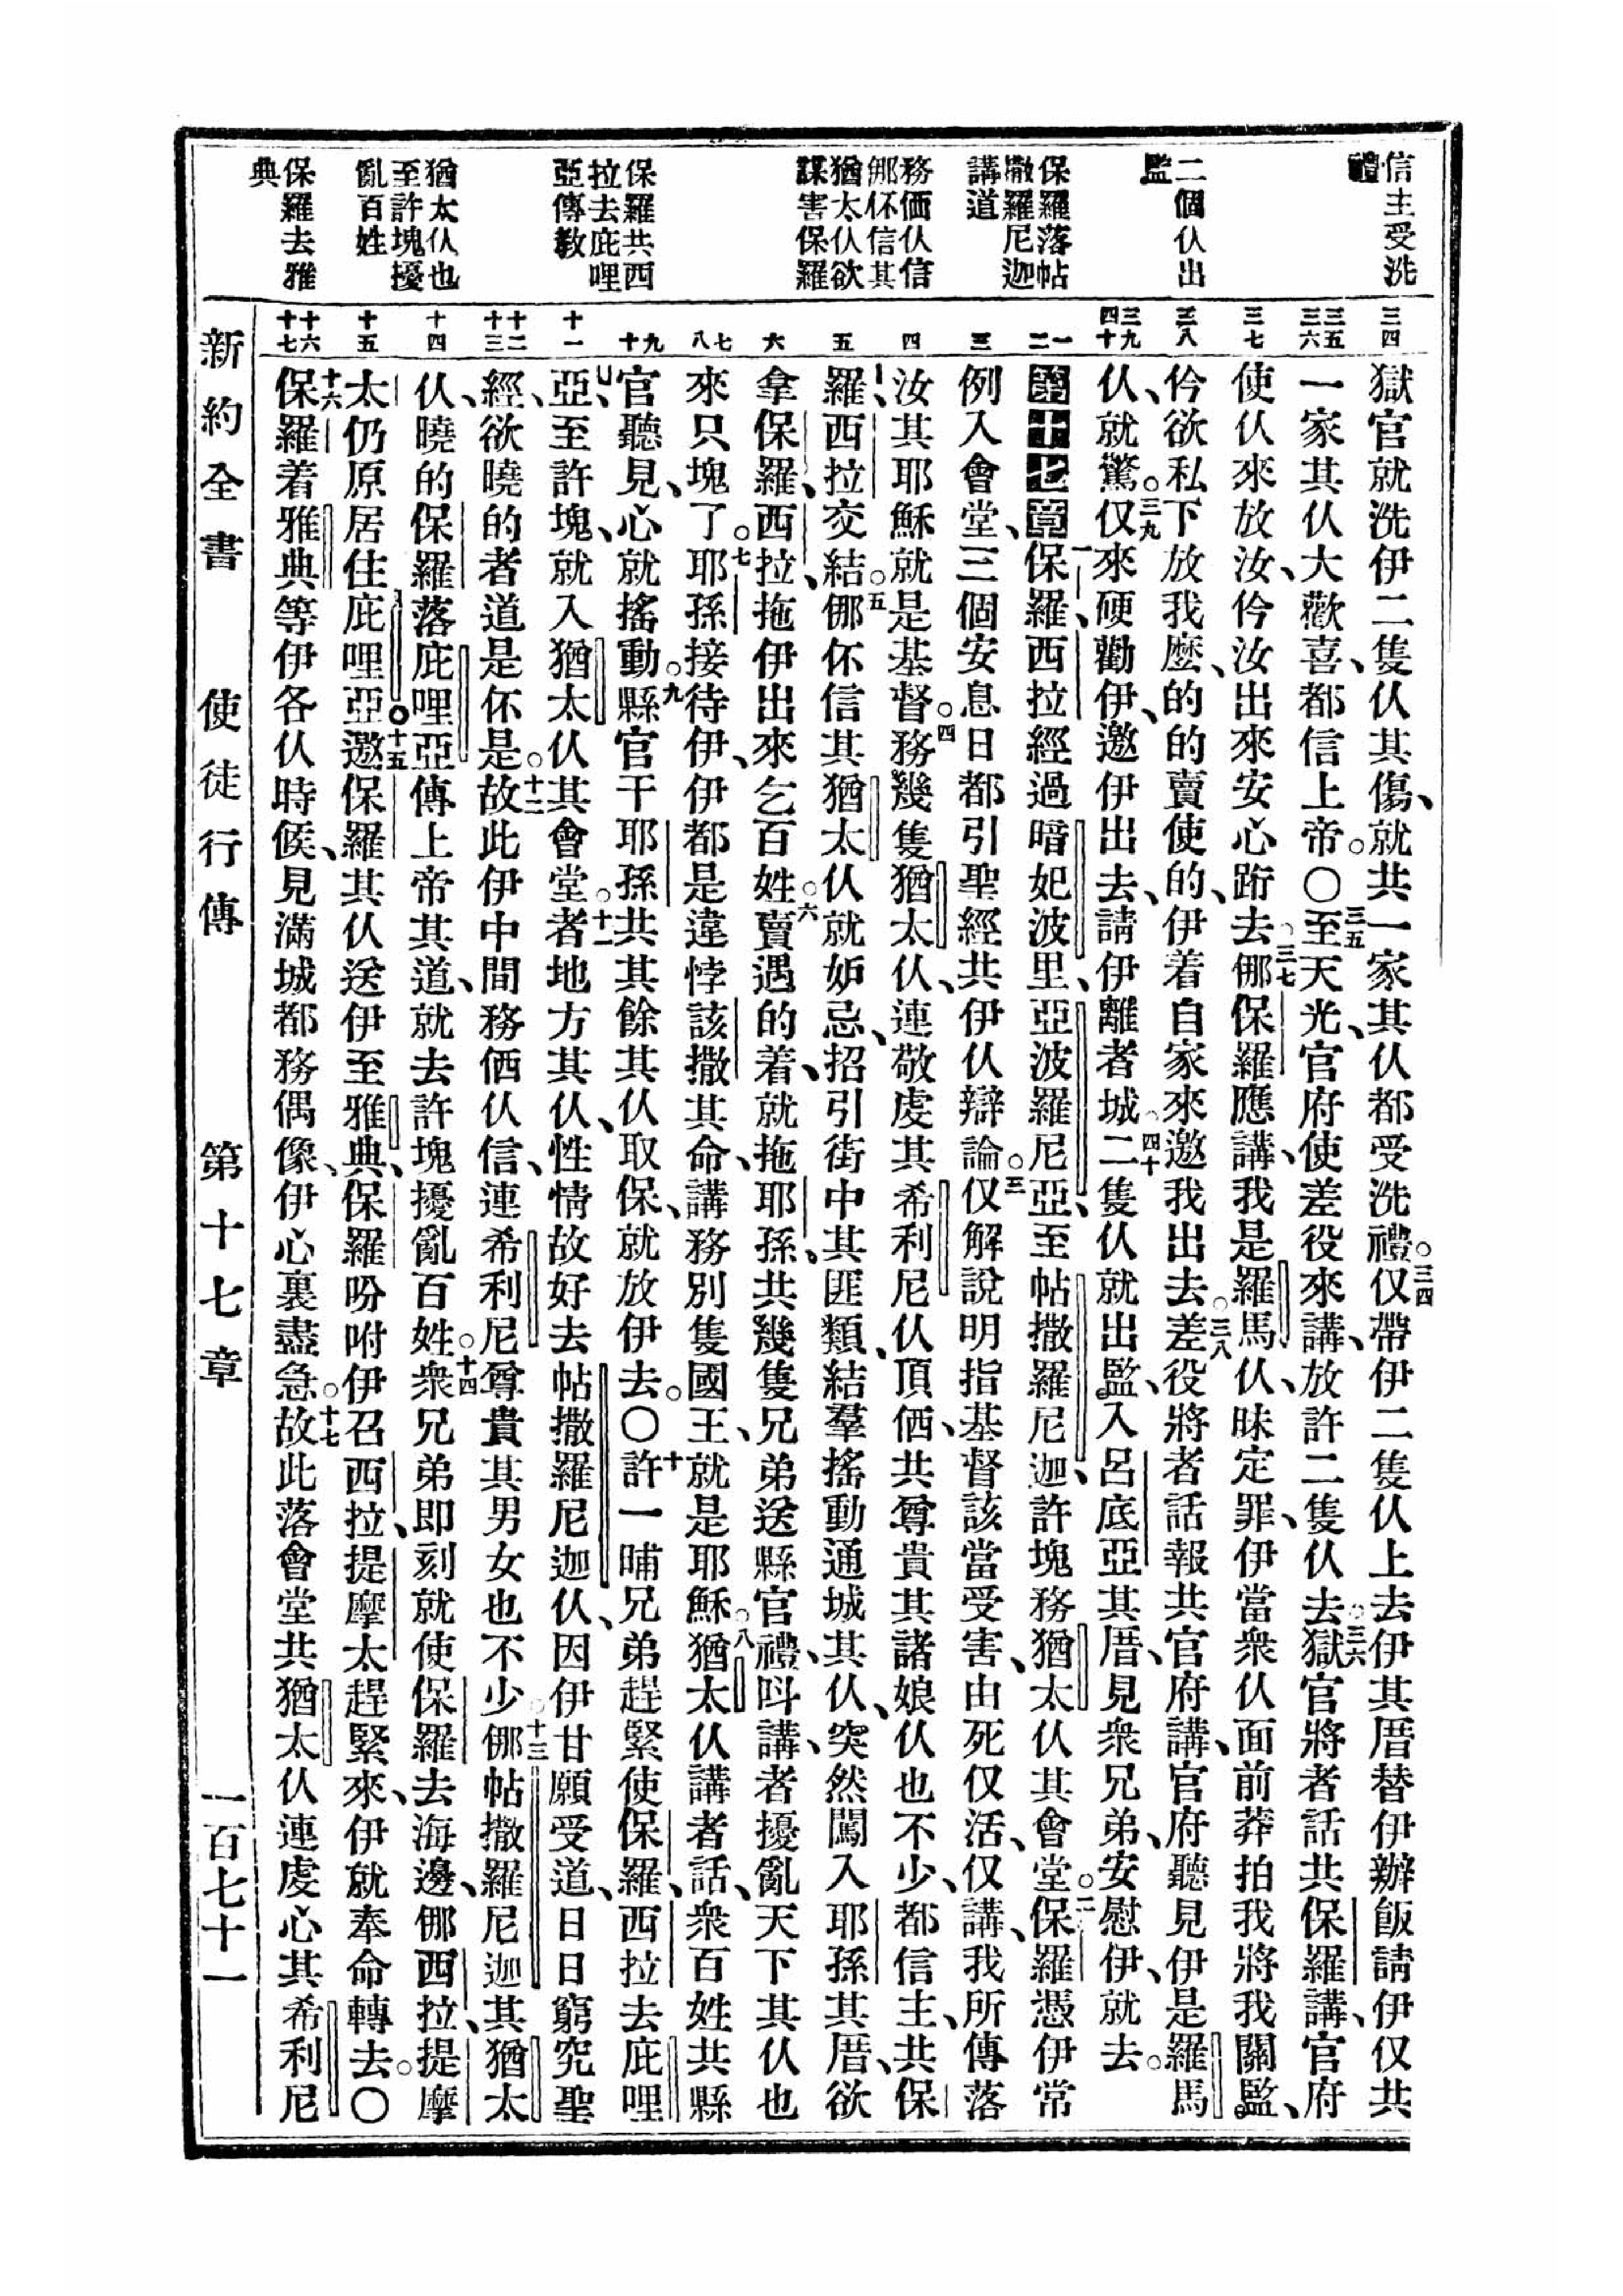 信主受洗
禮
二個仈出
監
保羅落帖
撒羅尼迦
講道
務価仈信
㑚伓信其
猶太仈欲
謀害保羅
保羅共西
拉去庇哩
亞傳教
猶太仈也
至許塊擾
亂百姓
保羅去雅
典
三四
三五 三六
三七
三八
三九 四十
一 二
三
四
五
六
七 八
九 十
十一
十二 十三
十四
十五
十六 十七
獄官就洗伊二隻仈其傷、就共一家其仈都受洗禮。三四仅帶伊二隻仈上去伊其厝替伊辦飯請伊仅共
一家其仈大歡喜、都信上帝。〇三五至天光、官府使差役來講、放許二隻仈去。三六獄官將者話共保羅講、官府
使仈來放汝、仱汝出來安心跡去。三七㑚保羅應講、我是羅馬仈、昧定罪、伊當衆仈面前莽拍我將我關監、
仱欲私下放我麽、的的賣使的、伊着自家來邀我出去。三八差役將者話報共官府講、官府聽見伊是羅馬
仈、就驚。三九仅來硬勸伊、邀伊出去、請伊離者城。四十二隻仈就出監、入呂底亞其厝、見衆兄弟、安慰伊、就去。
第十七章一保羅、西拉經過暗妃波里、亞波羅尼亞、至帖撒羅尼迦、許塊務猶太仈其會堂。二保羅憑伊常
例入會堂、三個安息日都引聖經共伊仈辯論。三仅解說明指基督該當受害、由死仅活、仅講、我所傳落
汝其耶穌就是基督。四務幾隻猶太仈、連敬虔其希利尼仈頂価、共尊貴其諸娘仈也不少、都信主、共保
羅、西拉交結。五㑚伓信其猶太仈就妒忌、招引街中其匪類、結羣搖動通城其仈、突然闖入耶孫其厝、欲
拿保羅、西拉、拖伊出來乞百姓。六賣遇的着、就拖耶孫、共幾隻兄弟送縣官禮、呌講、者擾亂天下其仈也
來只塊了。七耶孫接待伊、伊都是違悖該撒其命、講務別隻國王、就是耶穌。八猶太仈講者話、衆百姓共縣
官聽見、心就搖動。九縣官干耶孫共其餘其仈取保、就放伊去。〇十許一晡兄弟趕緊使保羅、西拉去庇哩
亞、至許塊、就入猶太仈其會堂。十一者地方其仈、性情故好去帖撒羅尼迦仈、因伊甘願受道、日日窮究聖
經、欲曉的者道是伓是。十二故此伊中間務価仈信、連希利尼尊貴其男女也不少。十三㑚帖撒羅尼迦其猶太
仈、曉的保羅落庇哩亞傳上帝其道、就去許塊擾亂百姓。十四衆兄弟即刻就使保羅去海邊、㑚西拉、提摩
太仍原居住庇哩亞。十五邀保羅其仈送伊至雅典、保羅吩咐伊召西拉、提摩太趕緊來、伊就奉命轉去。〇
十六保羅着雅典等伊各仈時候、見滿城都務偶像、伊心裏盡急。十七故此落會堂共猶太仈連虔心其希利尼
新約全書 使徒行傳 第十七章 一百七十一